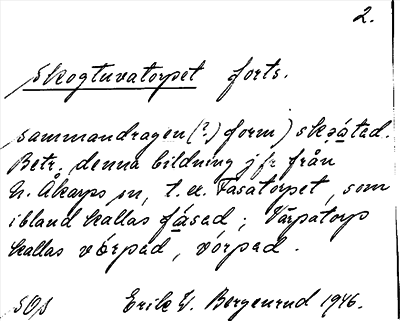 2.
Skogtuvatorpet forts.
sammandragen (?) form) skəátad.
Betr. denna bildning jfr från
N. Åkarps sn, t. ex. Fasatorpet, som
ibland kallas fásad; Värpatorp
kallas vǿrpad, vórpad.
SOS Erik W. Bergenrud 1946.